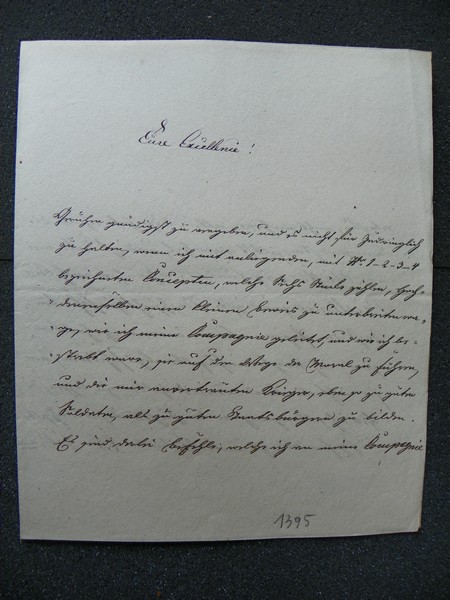 Eure Excellenz!
Geruhen gnädigst zu vergeben, und es nicht für zudringlich
zu halten, wenn ich mit anliegenden, mit N: 1-2-3-4
bezeichneten Concepten, welche sechs Stücke zählen, Hoch-
denenselben einen kleinen Beweis zu unterbreiten wa-
ge, wie ich meine Compagnie geleitet, und wie ich be-
strebt ware, sie auf dem Wege der Moral zu führen,
und die mir anvertrauten Krieger, eben so zu guten
Soldaten, als zu guten Staatsbürgern zu bilden.
Es sind dabei Befehle, welche ich an meine Compagnie
1395